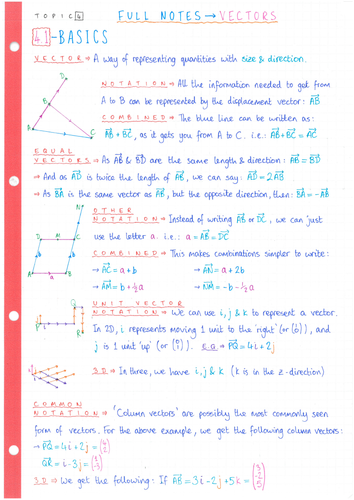 TOPIC 4 FULL NOTES → VECTORS
4.1 - BASICS
VECTOR ⇒ A way of representing quantities with size & direction.
NOTATION ⇒ All the information needed to get from
A to B can be represented by the displacement vector: AB
COMBINED ⇒ The blue line can be written as:
AB + BC, as it gets you from A to C. i.e: AB + BC = AC
D
B
A
C
EQUAL
VECTORS ⇒ As AB & BD are the same length & direction: AB = BD
⇒ And as AD is twice the length of AB, we can say: AD = 2AB
⇒ As BA is the same vector as AB, but the opposite direction, then: BA = -AB
OTHER
NOTATION ⇒ Instead of writing AB or DC, we can just
use the letter a. i.e.: a = AB = DC
COMBINED ⇒ This makes combinations simpler to write:
→ AC = a + b → AN = a + 2b
→ AM = b + ½a → NM = -b - ½a
N
D M C
b
A a B
UNIT VECTOR
NOTATION ⇒ We can use i, j & k to represent a vector.
In 2D, i represents moving 1 unit to the 'right' (or (1 0)), and
j is 1 unit 'up' (or (0 1)). E.G ⇒ PQ = 4i + 2j
Q
P
R
3D ⇒ In three, we have i, j & k (k is in the z-direction)
COMMON
NOTATION ⇒ 'Column vectors' are possibly the most commonly seen
form of vectors. For the above example, we get the following column vectors:
→ PQ = 4i + 2j = (4 2)
QR = i - 3j = (1 -3)
3D ⇒ We get the following: If AB = 3i - 2j + 5k = (3 -2 5)